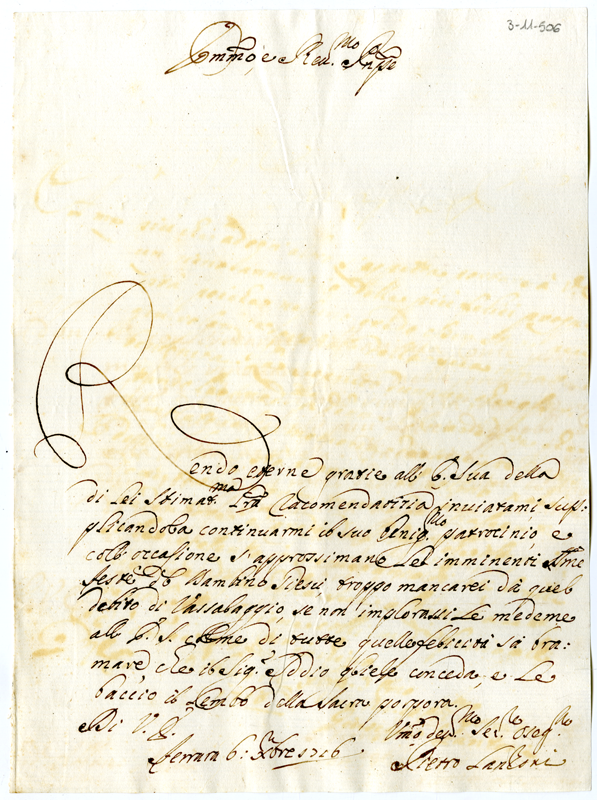 3-11-506
Emmo, e Reu.mo Pnpe
Rendo eterne gratie all' E. Sua della
di Lei Stimat.ma Lra Racomendatitia inuiatami, sup:
plicandola continuarmi il suo benig.mo patrocinio, e
coll' occasione s' approssimane Le imminenti SSme
feste del Bambino Giesù, troppo mancarei da quel
debito di Vassalaggio, se non implorassi Le medeme
all' E. S. colme di tutte quelle felicità sà bra:
mare, che il Sig.e Iddio gliele conceda, e Le
baccio il Lembo della Sacra porpora.
Di V. E.
Ferrara 6: Xbre 1716
Umo deu.mo Ser.re Oseq.mo
Pietro Lanzoni